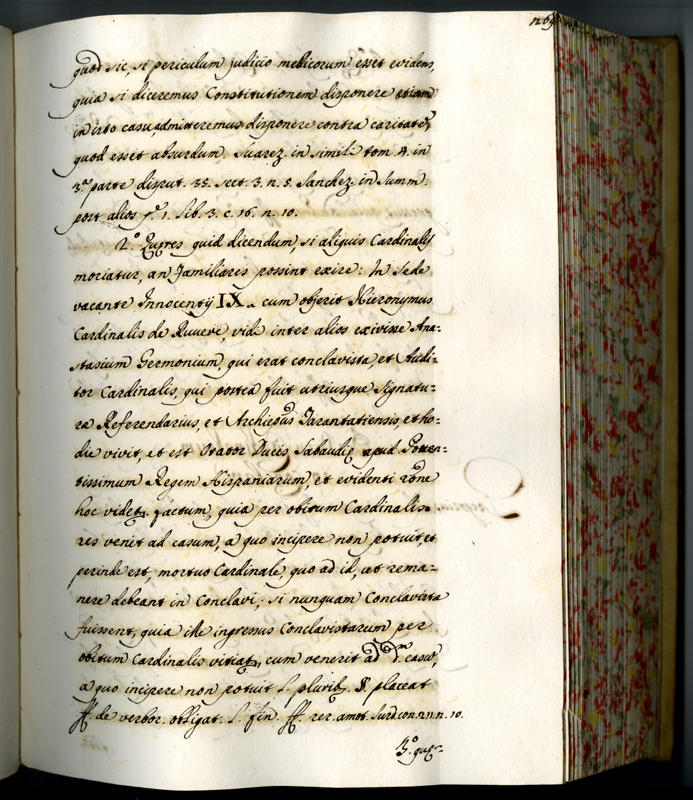 quod sic, si periculum judicio medicorum esset evidens,
quia si diceremus Constitutionem disponere etiam
in isto casu admitteremus disponere contra caritatē,
quod esset absurdum. Suarez in simili tom. 4. in
3.ª parte disput. 35. sect. 3. n. 5. Sanchez in Summ.
post alios lib. 3. c. 16. n. 10.
2.º quid dicendum, si aliquis Cardinalis
moriatur, an Familiares possint exire: In Sede
vacante Innocentij IX. cum obierit Hieronymus
Cardinalis de Ruvere, vidi inter alios exivisse Ana-
stasium Germonium, qui erat conclavista, et Audi-
tor Cardinalis, qui postea fuit utriusque Signatu-
ræ Referendarius, et Archiepūs Tarantasiensis, et ho-
die vivit, et est Orator Ducis Sabaudię apud Poten-
tissimum Regem Hispaniarum, et evidenti rōne
hoc videtr. factum, quia per obitum Cardinalis
res venit ad casum, a quo incipere non potuit, et
perinde est, mortuo Cardinale, quo ad id, ac rema-
nere debeant in Conclavi, si nunquam Conclavista
fuissent, quia ille ingressus Conclavistarum per
obitum Cardinalis vitiatr, cum venerit ad casū,
a quo incipere non potuit l. pluribs §. placeat
ff. de verbor. obligat. l. fin. ff. rer. amot. n. 10.
3.º